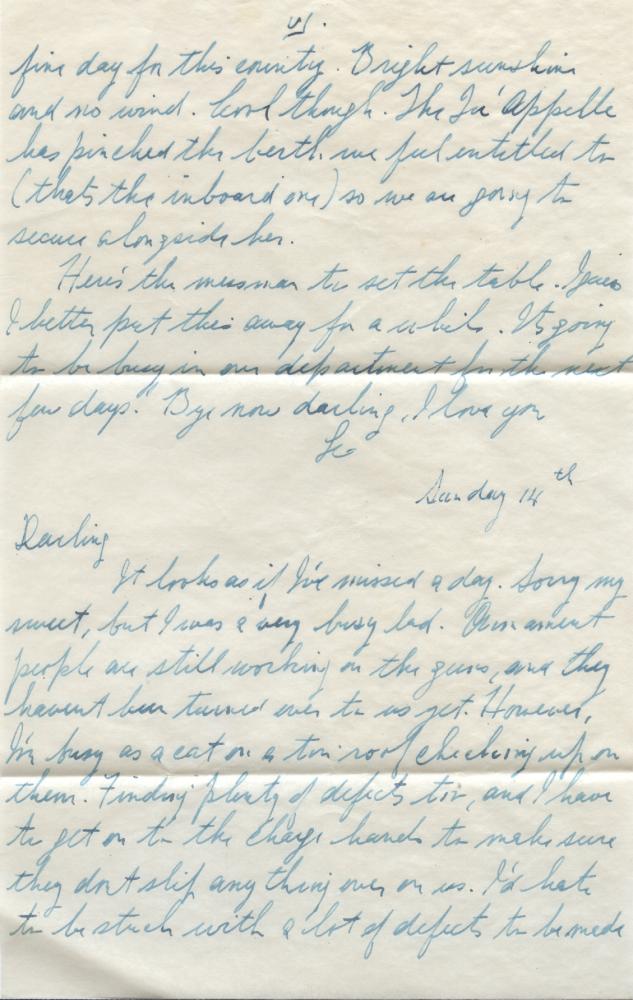 VI.
fine day for this country. Bright sunshine
and no wind. Cool though. The Qu'Appelle
has pinched the berth we feel entitled to
(thats the inboard one) so we are going to
secure alongside her.
Here's the messman to set the table. I guess
I better put this away for a while. Its going
to be busy in our department for the next
few days. Bye now darling, I love you
Sunday 14th
Darling
It looks as if I've missed a day. Sorry my
sweet, but I was a very busy lad. Ornament
people are still working on the guns, and they
havent been turned over to us yet. However,
I'm busy as a cat on a tin roof checking up on
them. Finding plenty of defects too, and I have
to get on to the charge hands to make sure
they dont slip any thing over on us. I'd hate
to be stuck with a lot of defects to be made